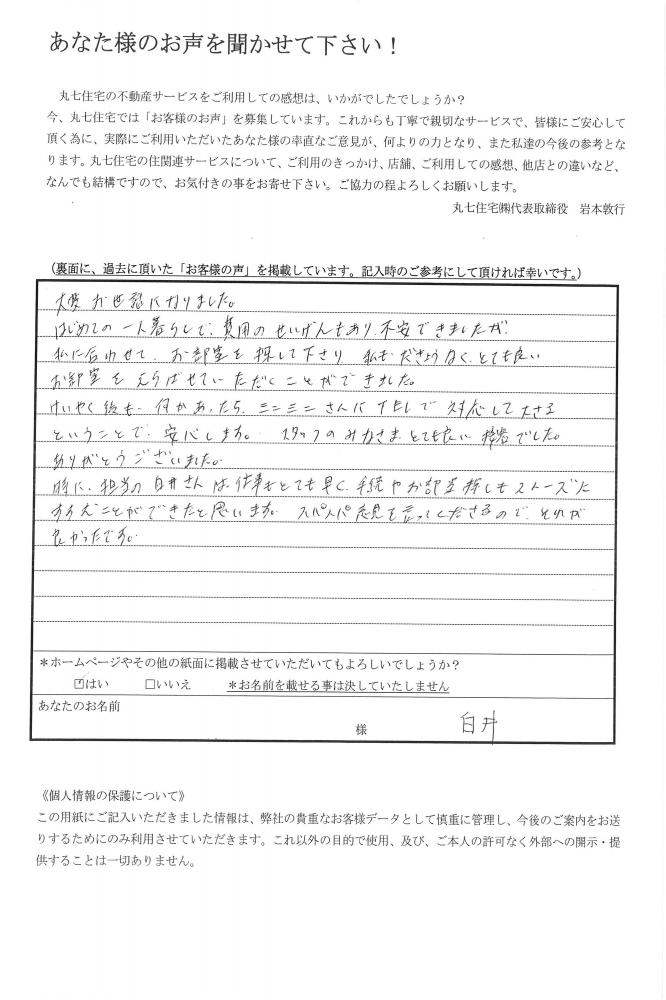 あなた様のお声を聞かせて下さい！
丸七住宅の不動産サービスをご利用しての感想は、いかがでしたでしょうか？
今、丸七住宅では「お客様のお声」を募集しています。これからも丁寧で親切なサービスで、皆様にご安心して
頂く為に、実際にご利用いただいたあなた様の率直なご意見が、何よりの力となり、また私達の今後の参考とな
ります。丸七住宅の住関連サービスについて、ご利用のきっかけ、店舗、ご利用しての感想、他店との違いなど、
なんでも結構ですので、お気付きの事をお寄せ下さい。ご協力の程よろしくお願いします。
丸七住宅㈱代表取締役　岩本敦行
（裏面に、過去に頂いた「お客様の声」を掲載しています。記入時のご参考にして頂ければ幸いです。）
大変お世話になりました。
はじめての一人暮らしで、費用のせいげんもあり、不安できましたが、
私に合わせて、お部屋を探して下さり 私も ださょうなく、とても良い
お部屋を えらばせていただくことができました。
けいやく後も、何かあったら、ミニミニさんにTELして 対応して下さる
ということで、安心します。 スタッフのみなさま とても良い 接客でした。
ありがとうございました。
特に、担当の 白井さんは、仕事もとても早く、手続やお部屋探しもスムーズに
すすむことができたと思います。 スパスパ意見を言ってくださるので、それが
良かったです。
＊ホームページやその他の紙面に掲載させていただいてもよろしいでしょうか？
☑はい　□いいえ　＊お名前を載せる事は決していたしません
あなたのお名前
様 白井
《個人情報の保護について》
この用紙にご記入いただきました情報は、弊社の貴重なお客様データとして慎重に管理し、今後のご案内をお送
りするためにのみ利用させていただきます。これ以外の目的で使用、及び、ご本人の許可なく外部への開示・提
供することは一切ありません。